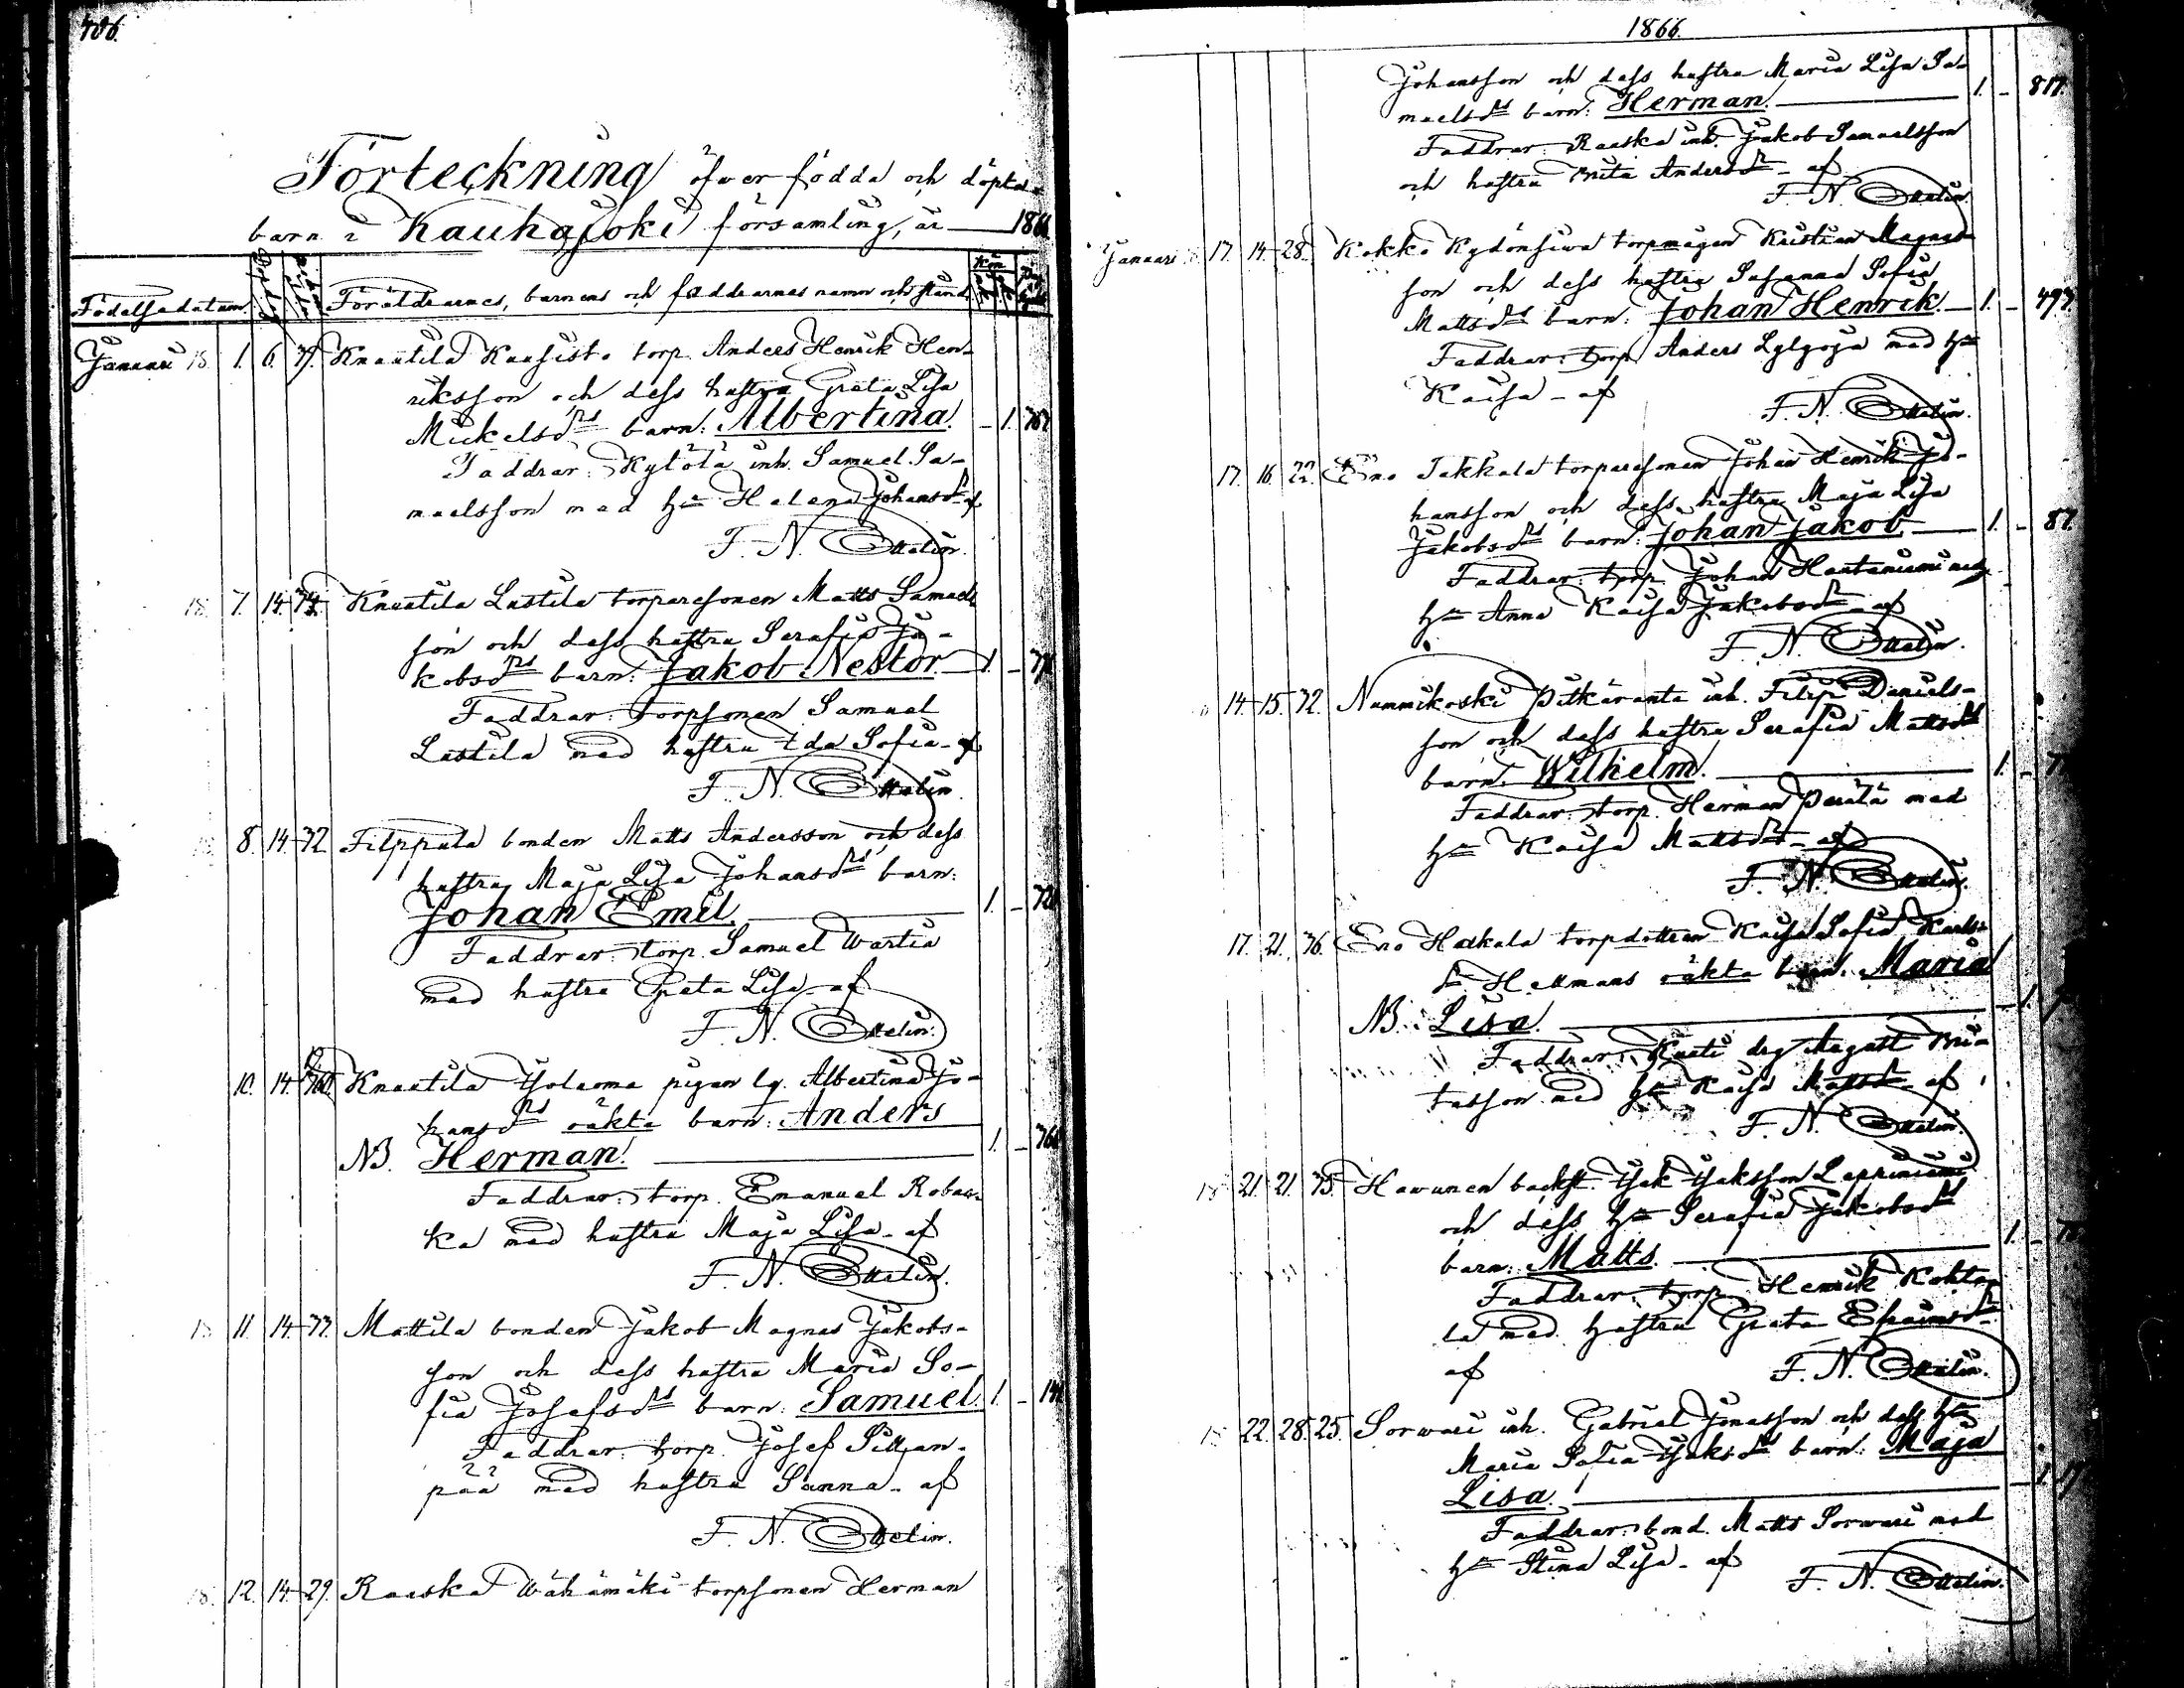 406.
Förteckning öfver födda och döpta
barn i Kauhajoki församling, år 1866
Födelsedatum Föräldrarnes, barnens och faddrarnes namn och stånd Kön
Januari 1. 6. Knuutila Kuusisto torp. Anders Henrik Hen-
riksson och dess hustru Greta Lisa
Mickelsdrs barn: Albertina. - 1.
Faddrar: Kylölä inh. Samuel Sa-
muelsson med hu Helena Johansdr af
F. N. Ottelin.
7. 14. Knuutila Lustila torparesonen Matts Samuels
son och dess hustru Serafia Ja-
kobsdrs barn: Jakob Nestor. 1. -
Faddrar: torpsonen Samuel
Lustila med hustru Ida Sofia - af
F. N. Ottelin.
8. 14. 32 Filppula bonden Matts Andersson och dess
hustru Maja Lisa Johansdrs barn:
Johan Emil. 1. -
Faddrar: torp. Samuel Wartia
med hustru Greta Lisa - af
F. N. Ottelin.
10. 14. Knuutila Yolaoma pigan lg. Albertina Jo-
hansdrs oäkta barn: Anders
NB. Herman. 1. -
Faddrar: torp. Emanuel Robas-
ka med hustru Maja Lisa - af
F. N. Ottelin.
11. 14. 33. Mattila bonden Jakob Magnus Jakobs-
son och dess hustru Maria So-
fia Josefsdrs barn: Samuel. 1. -
Faddrar: torp. Josef Pittjan-
pää med hustru Sanna - af
F. N. Ottelin.
12. 14. 29. Raaska Wähämäki torpsonen Herman
1866.
Johansson och dess hustru Maria Lisa Sa-
muelsdrs barn: Herman. 1. - 817.
Faddrar: Raaska inh. Jakob Samuelsson
och hustru Brita Andersdr - af
F. N. Ottelin.
Januari 17. 14. 28. Kokko Kydönsiwu torpmågen Kristian Magnus
son och dess hustru Susanna Sofia
Mattsdrs barn: Johan Henrik. 1. - 497.
Faddrar: torp. Anders Lylyoja med hu
Kaisa - af
F. N. Ottelin.
17. 16. 22. Eno Takkala torparesonen Johan Henrik Jo-
hansson och dess hustru Maja Lisa
Jakobsdrs barn: Johan Jakob 1. - 87.
Faddrar: torp. Johan Hautaniemi med
hu Anna Kaisa Jakobsdr - af
F. N. Ottelin.
14. 15. 32. Nummikoski Pitkäranta inh. Filip Daniels-
son och dess hustru Serafia Mattsdrs
barn: Wilhelm. 1. -
Faddrar: torp. Herman Perälä med
hu Kaisa Mattsdr - af
F. N. Ottelin.
17. 21. 36. Eno Hakala torpdottren Kaisa Sofia Karls-
dr Hellmans oäkta barn: Maria
NB. Lisa. - 1.
Faddrar: drg August
tasson med hu Kaisa Mattsdr af
F. N. Ottelin.
21. 21. 35. Havunen backst. Isak Isaksson Leppiniemi
och dess hu Serafia Jakobsdrs
barn: Matts. 1. -
Faddrar: torp. Henrik Kokto-
la med hustru Greta Efraimsdr
af F. N. Ottelin.
22. 28. 25. Sorwari inh. Gabriel Jonasson och dess hu
Maria Sofia Isaksdrs barn: Maja
Lisa. - 1.
Faddrar: bond. Matts Sorwari med
hu Stina Lisa - af F. N. Ottelin.